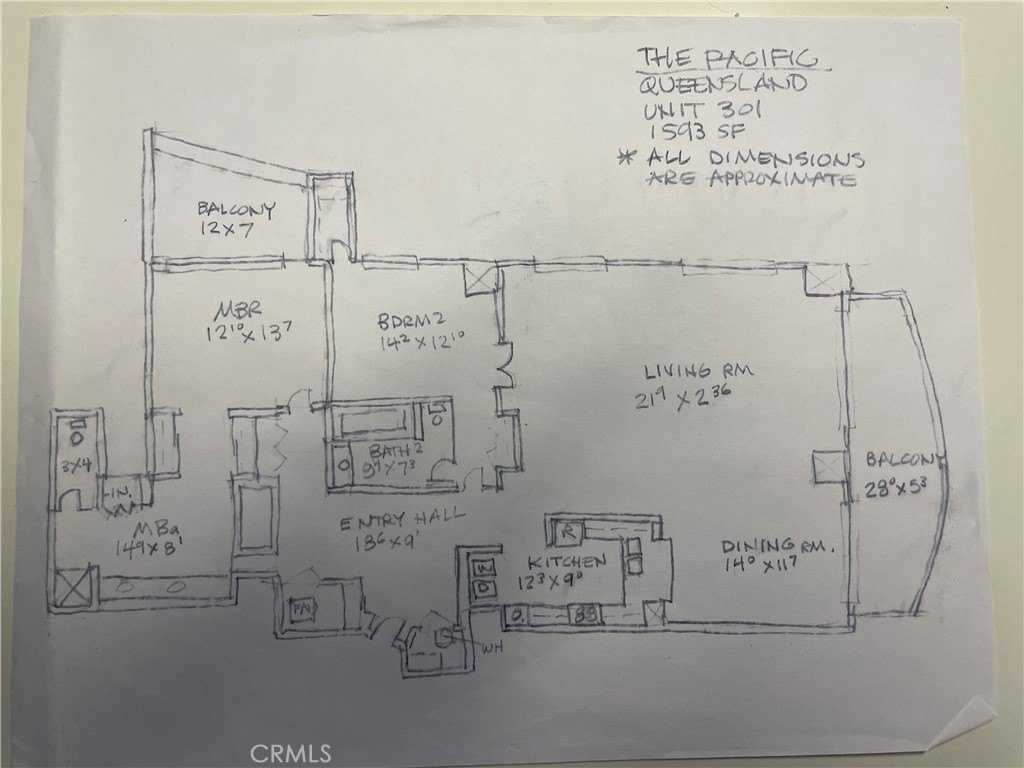 THE PACIFIC
QUEENSLAND
UNIT 301
1593 SF
* ALL DIMENSIONS
ARE APPROXIMATE
BALCONY
12 X 7
MBR
12¹⁰ X 13⁷
BDRM 2
14² X 12¹⁰
LIVING RM
21⁹ X 23⁶
3X4
BATH 2
8⁹ X 7³
BALCONY
28⁰ X 5³
MBa
14⁹ X 8¹
ENTRY HALL
18⁶ X 9¹
R
KITCHEN
12³ X 9⁰
DINING RM.
14⁰ X 11⁷
W
D
FAU
O
WH
CRMLS